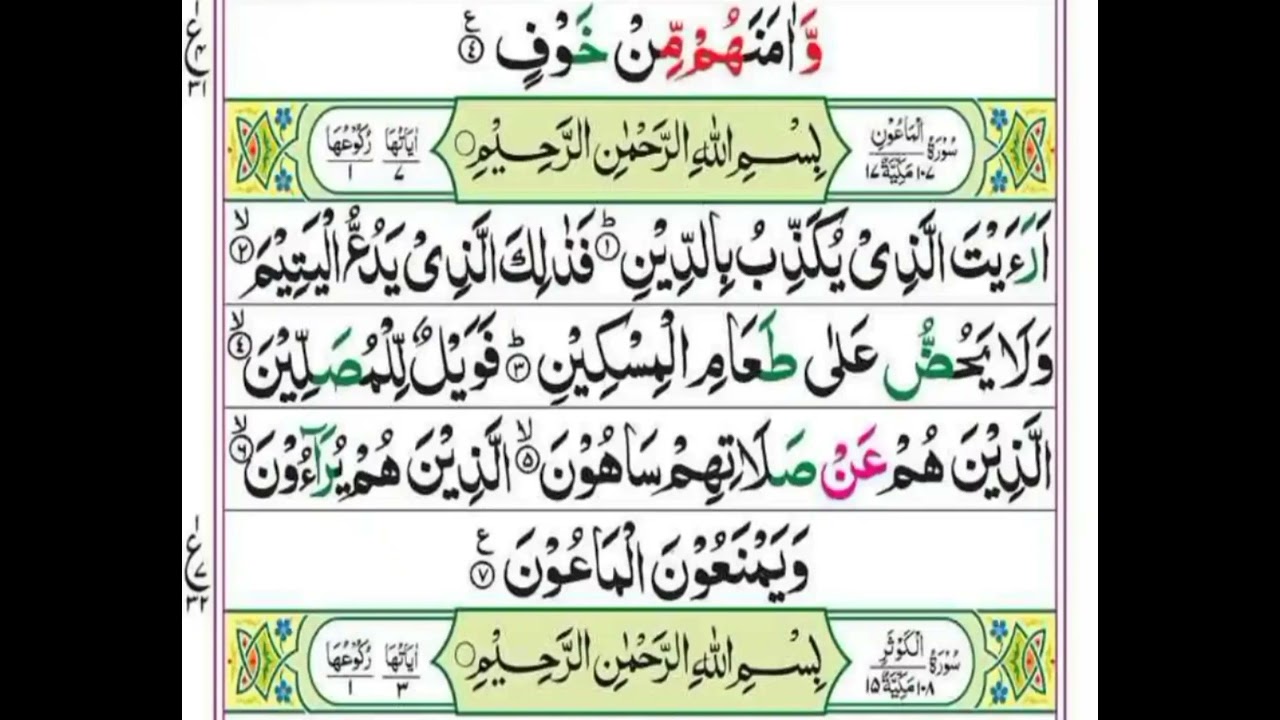 وَّاٰمَنَهُمْ مِّنْ خَوْفٍ ۝٤ ع
ع ٤ ٣١
سُوْرَةُ الْمَاعُوْنِ ١٠٧ مَكِّيَّةٌ ١٧ بِسْمِ اللّٰهِ الرَّحْمٰنِ الرَّحِيْمِ ۝ اٰيَاتُهَا ٧ رُكُوْعُهَا ١
اَرَءَيْتَ الَّذِىْ يُكَذِّبُ بِالدِّيْنِ ؕ۝١ فَذٰلِكَ الَّذِىْ يَدُعُّ الْيَتِيْمَ ۙ۝٢
وَلَا يَحُضُّ عَلٰى طَعَامِ الْمِسْكِيْنِ ؕ۝٣ فَوَيْلٌ لِّلْمُصَلِّيْنَ ۙ۝٤
الَّذِيْنَ هُمْ عَنْ صَلَاتِهِمْ سَاهُوْنَ ۙ۝٥ الَّذِيْنَ هُمْ يُرَآءُوْنَ ۙ۝٦
وَيَمْنَعُوْنَ الْمَاعُوْنَ ۝٧ ع
ع ٧ ٣٢
سُوْرَةُ الْكَوْثَرِ ١٠٨ مَكِّيَّةٌ ١٥ بِسْمِ اللّٰهِ الرَّحْمٰنِ الرَّحِيْمِ ۝ اٰيَاتُهَا ٣ رُكُوْعُهَا ١